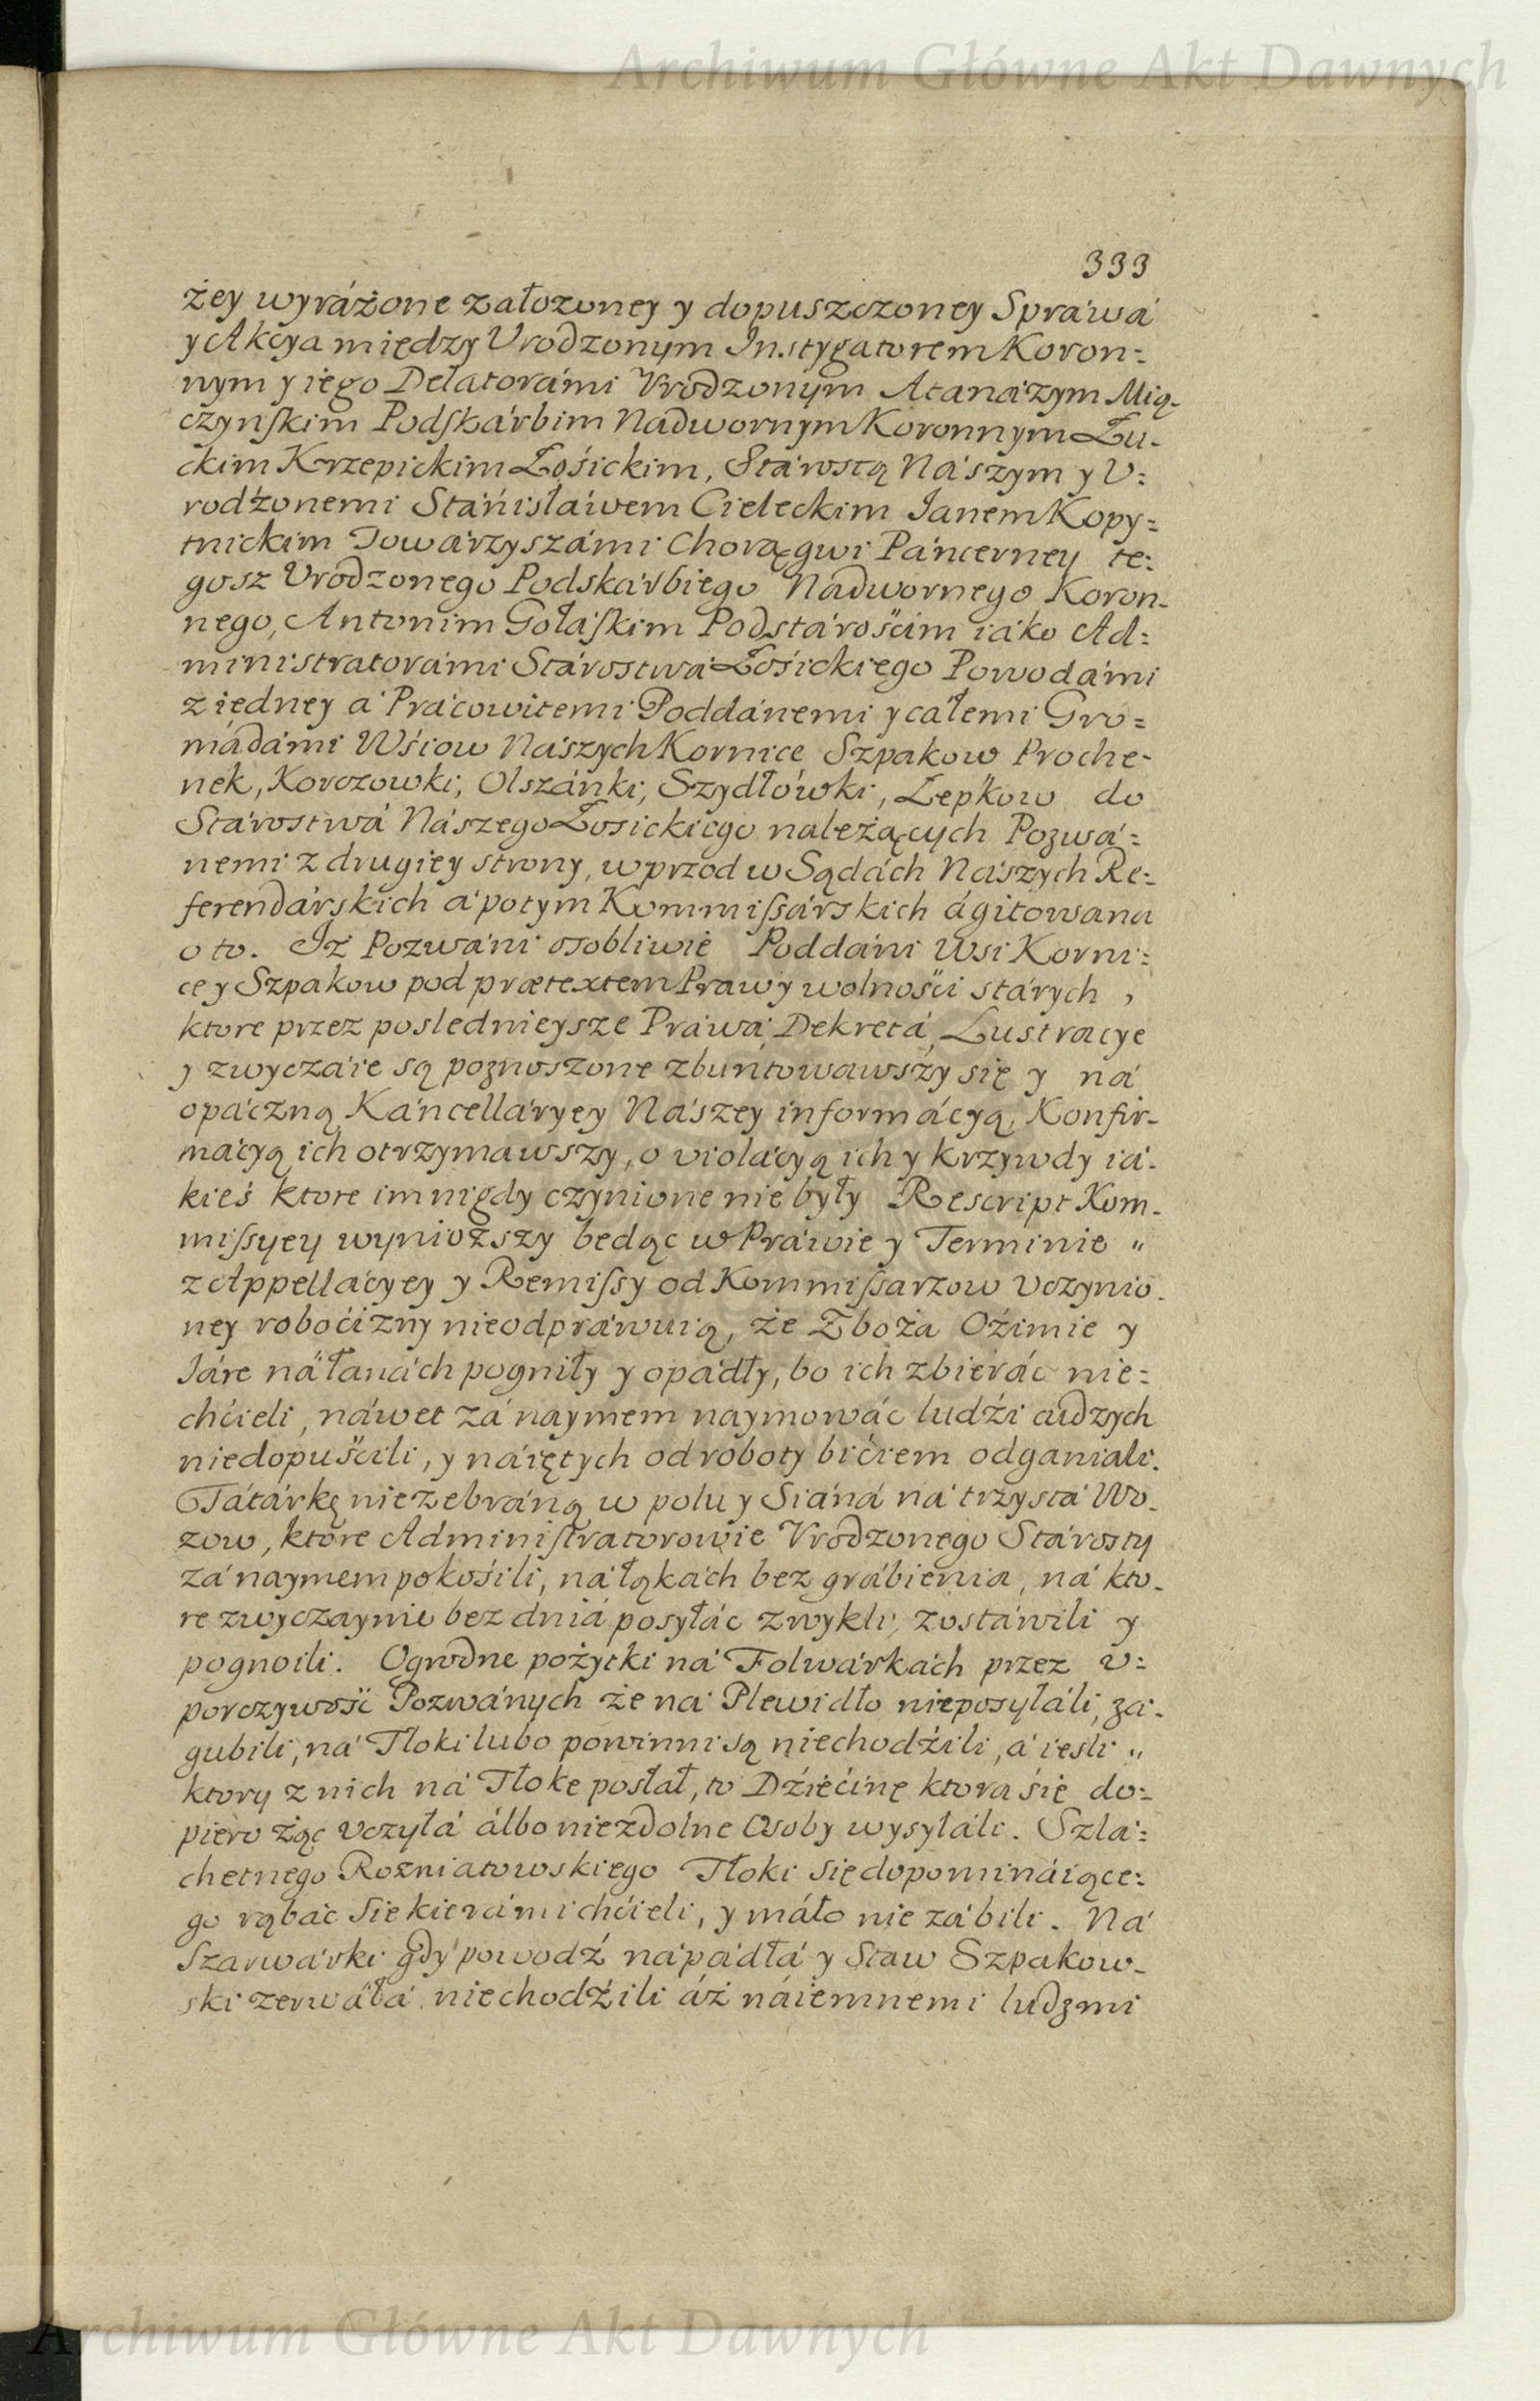 Archiwum Główne Akt Dawnych
333
żey wyráżone załozoney y dopuszczoney Spráwá
y Akcya między Vrodzonym Instygatorem Koron=
nym y iego Delatorámi Vrodzonym Atanázym Mią-
czyńſkim Podſkárbim Nadwornym Koronnym Łu-
ckim Krzepickim Łośickim, Stárostą Nászym y V=
rodżonemi Stánisłáwem Cieleckim Ianem Kopy=
tnickim Towárzyszámi Chorągwi Páncerney te=
gosz Vrodzonego Podskárbiego Nadwornego Koron-
nego, Antonim Gołáſkim Podstárościm iáko Ad=
ministratorámi Stárostwá Łośickiego Powodámi
z iedney á Prácowitemi Poddánemi y cáłemi Gro=
mádámi Wśiow Nászych Kornice Szpakow Proche-
nek, Korczowki, Olszánki, Szydłówki, Łepkow do
Stárostwá Nászego Łosickiego należących Pozwá=
nemi z drugiey strony, wprzod w Sądách Nászych Re=
ferendárskich á potym Kommiſsárskich ágitowana
o to. Iż Pozwáni osobliwie Poddáni Wsi Korni=
ce y Szpakow pod prætextem Praw y wolności stárych,
ktore przez poslednieysze Práwá, Dekretá, Lustracye
y zwyczáie są poznoszone zbuntowawszy się y ná
opáczną Káncelláryey Nászey informácyą, Konfir-
mácyą ich otrzymawszy, o violácyą ich y krzywdy iá-
kieś ktore im nigdy czynione nie były Rescript Kom-
miſsyey wyniozszy będąc w Práwie y Terminie "
z Appellácyey y Remiſsy od Kommiſsarzow Vczynio-
ney roboćizny nieodpráwuią, że Zboża Oźimie y
Iáre ná łanách pogniły y opádły, bo ich zbieráć nie=
chćieli, náwet zá naymem naymowáć ludźi cudzych
niedopuśćili, y náiętych od roboty bićiem odganiali.
Tátárkę niezebráną w polu y Siáná ná trzystá Wo-
zow, ktore Adminiſtratorowie Vrodzonego Stárosty
zá naymem pokośili, ná łąkách bez grábienia, ná kto-
re zwyczaynie bez dniá posyłáć zwykli, zostáwili y
pognoili. Ogrodne pożytki ná Folwárkách przez v=
porczywość Pozwánych że ná Plewidło nieposyłáli, zá-
gubili, ná Tłoki lubo powinni są niechodźili, á iesli "
ktory z nich ná Tłokę posłał, to Dźiećinę ktora się do=
piero żąc vczyłá álbo niezdolne Osoby wysyłáli. Szlá=
chetnego Rozniatowskiego Tłoki się dopomináiące=
go rąbáć Siekierámi chćieli, y máło nie zábili. Ná
Szarwárki gdy powodź nápádłá y Staw Szpakow-
ski zerwáłá niechodźili áż náiemnemi ludzmi
Archiwum Główne Akt Dawnych